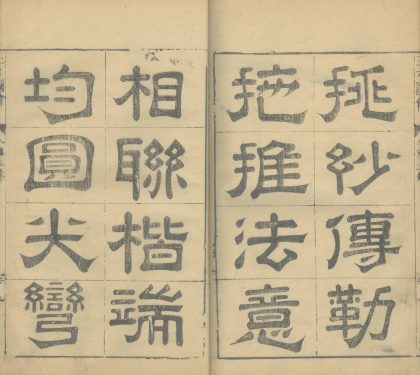 挑紗傳勒
推法意
相聯楷端
均圓尖彎